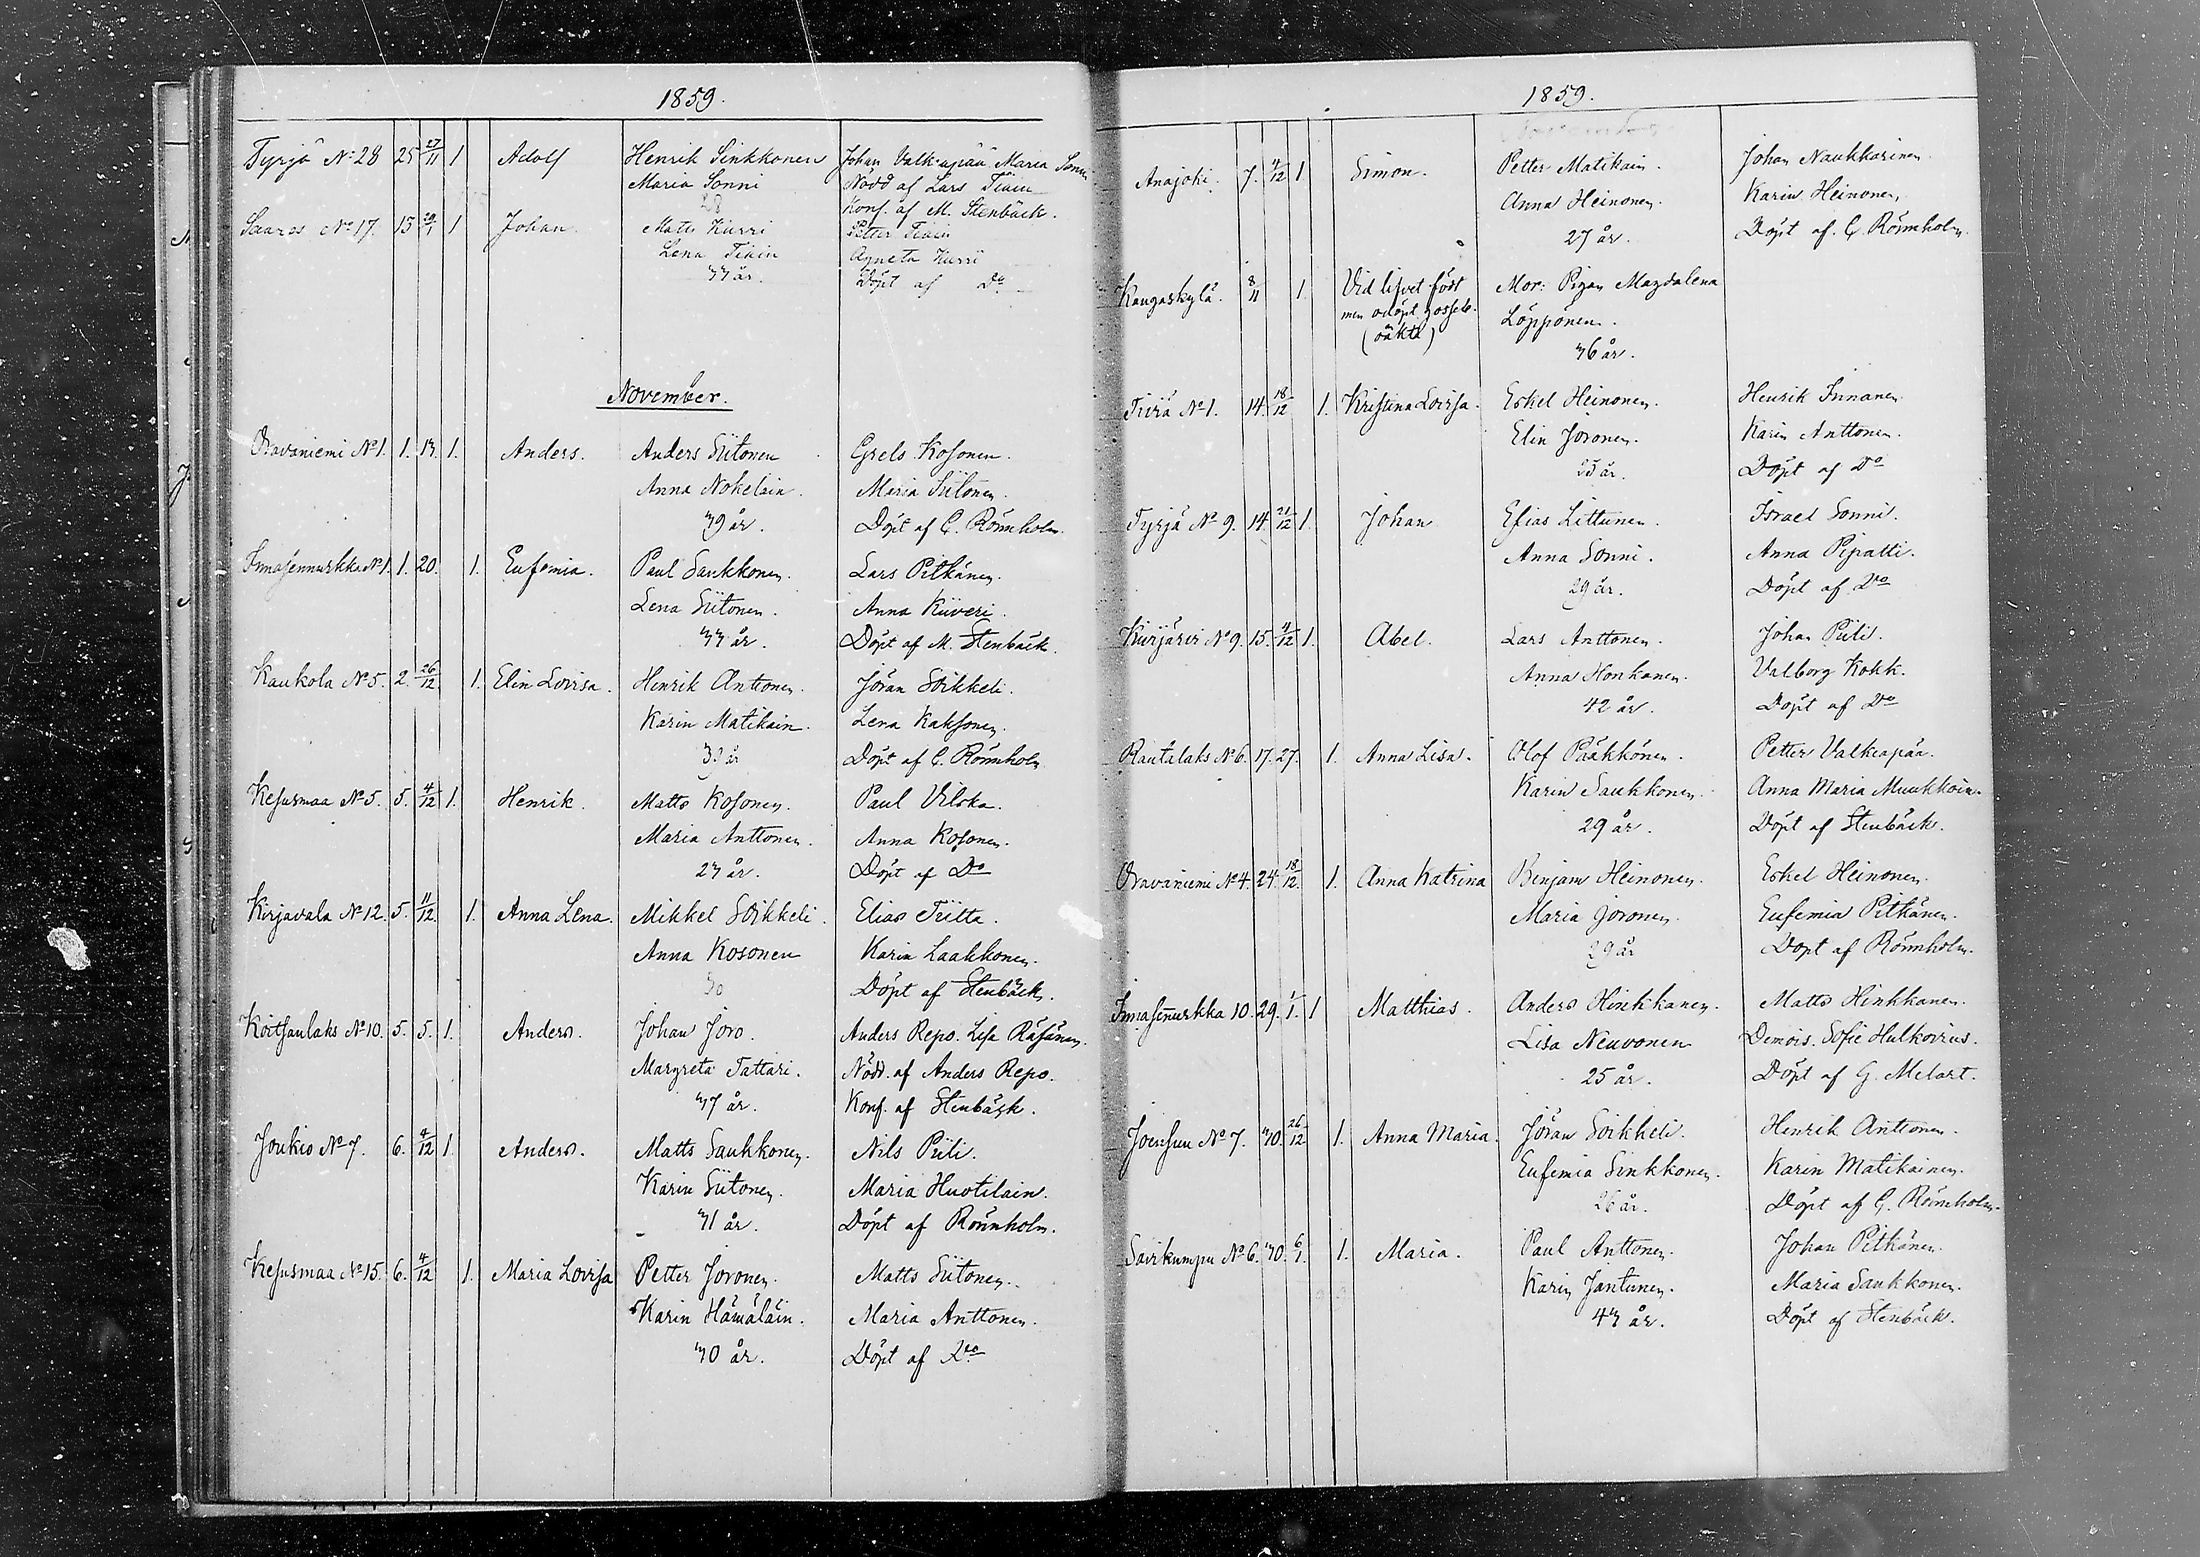 1859.
Tyrjä No 28 25 27/11 1 Adolf Henrik Sinkkonen Johan Valkiapää Maria Sonni
Maria Sonni Nödd af Lars Tiain
28 Konf. af M. Stenbäck.
Saares No 17. 15 29/1 1 Johan Matts Kurri Petter Tiain
Lena Tiain Agneta Kurri
33 år. Döpt af Do
November.
Oravaniemi No 1. 1. 13. 1. Anders. Anders Siitonen Grels Kosonen.
Anna Nokelain. Maria Siitonen.
39 år. Döpt af C. Rönnholm.
Innasennurkka No 1. 1. 20. 1. Eufemia. Paul Saukkonen. Lars Pitkänen.
Lena Siitonen. Anna Kiiveri.
33 år. Döpt af M. Stenbäck.
Kaukola No 5. 2. 26/12. 1. Elin Lovisa. Henrik Anttonen. Jöran Soikkeli.
Karin Matikain. Lena Kaksonen.
år Döpt af C. Rönnholm
Kesusmaa No 5. 5. 4/12 1. Henrik. Matts Kosonen. Paul Vilska.
Maria Anttonen. Anna Kosonen.
23 år. Döpt af Do
Kirjavala No 12. 5. 11/12. 1. Anna Lena. Mikkel Soikkeli. Elias Tiitta.
Anna Kosonen Karin Laakkonen.
30 Döpt af Stenbäck.
Koitsanlaks No 10. 5. 5. 1. Anders. Johan Joro. Anders Repo. Lisa Räsänen.
Margreta Tattari. Nödd. af Anders Repo.
37 år. Konf. af Stenbäck.
Joukio No 7. 6. 4/12 1. Anders. Matts Saukkonen. Nils Piili.
Karin Siitonen. Maria Huotilain.
31 år. Döpt af Rönnholm.
Kesusmaa No 15. 6. 4/12 1. Maria Lovisa Petter Joronen. Matts Siitonen.
Karin Hämäläin. Maria Anttonen.
30 år. Döpt af Do
1859.
Anajoki. 7. 4/12 1. Simon. Petter Matikain. Johan Naukkarinen.
Anna Heinonen. Karin Heinonen.
27 år. Döpt af. C. Rönnholm.
Kangaskylä. 8/11 1. Vid lifvet född Mor: Pigan Magdalena
men odöpt gossebn. Löppönen.
(oäkta) 36 år.
Tiviä No 1. 14. 18/12 1. Kristina Lovisa. Eskel Heinonen. Henrik Innanen.
Elin Joronen. Karin Anttonen.
25 år. Döpt af Do
Tyrjä No 9. 14. 21/12 1. Johan Esias Littunen. Israel Sonni.
Anna Sonni. Anna Pipatti.
29 år. Döpt af Do
Kiirjärvi No 9. 15. 4/12 1. Abel. Lars Anttonen. Johan Piili.
Anna Honkanen. Valborg Kokk.
42 år. Döpt af Do
Rautalaks No 6. 17. 27. 1. Anna Lisa. Olof Pääkkönen. Petter Valkeapää.
Karin Saukkonen. Anna Maria Muukkoin.
29 år. Döpt af Stenbäck.
Oravaniemi No 4. 24. 18/12. 1. Anna Katrina Benjam Heinonen. Eskel Heinonen.
Maria Joronen. Eufemia Pitkänen.
29 år Döpt af Rönnholm.
Innasennurkka 10. 29. 1/1. 1 Matthias. Anders Hinkkanen. Matts Hinkkanen.
Lisa Neuvonen Demois. Sofie Hulkovius.
25 år. Döpt af G. Melart.
Joensuu No 7. 30. 26/12 1. Anna Maria. Jöran Soikkeli. Henrik Anttonen.
Eufemia Sinkkonen. Karin Matikainen.
26 år. Döpt af C. Rönnholm.
Savikumpu No 6. 30. 6/1. 1. Maria. Paul Anttonen. Johan Pitkänen.
Karin Jantunen. Maria Saukkonen.
43 år. Döpt af Stenbäck.